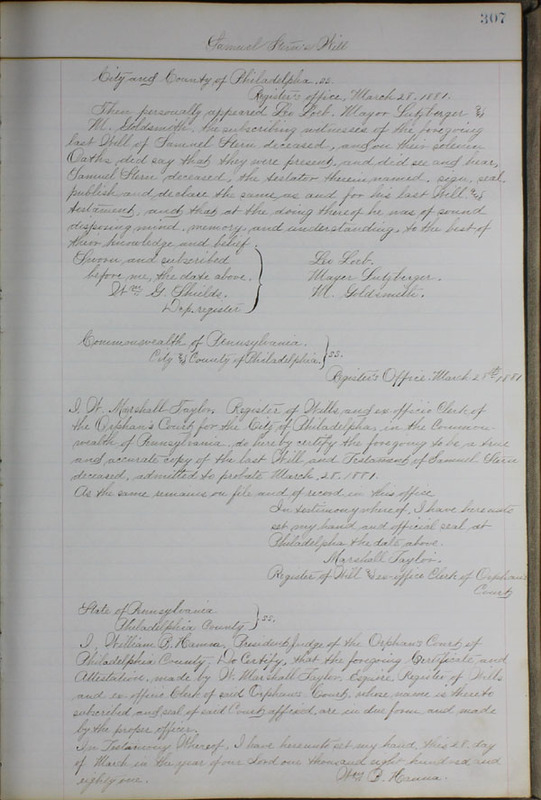 307
Samuel Stern's Will
City and County of Philadelphia. ss.
Register's office, March 28. 1881.
Then personally appeared Leo Loeb. Mayor Sulzberger &
M. Goldsmith, the subscribing witnesses of the foregoing
last Will of Samuel Stern deceased, and on their solemn
Oaths, did say that they were present, and did see and hear,
Samuel Stern, deceased, the testator therein named, sign, seal,
publish and declare the same, as and for his last Will &
testament, and that at the doing thereof he was of sound
disposing mind, memory, and understanding, to the best of
their knowledge and belief.
Sworn and subscribed
before me, the date above.
Wm G. Shields.
Dep. register
Leo Loeb.
Mayor Sulzberger.
M. Goldsmith.
Commonwealth of Pennsylvania.
City & County of Philadelphia. } ss.
Register's Office. March 28th 1881
I, W. Marshall Taylor, Register of Wills, and ex officio Clerk of
the Orphan's Court for the City of Philadelphia, in the Common-
wealth of Pennsylvania, do hereby certify the foregoing to be a true
and accurate copy of the last Will and Testament of Samuel Stern
deceased, admitted to probate March. 28. 1881.
As the same remains on file and of record in this office
In testimony whereof, I have hereunto
set my hand and official seal, at
Philadelpha the date above.
Marshall Taylor.
Register of Will & ex-office Clerk of Orphan's
Court
State of Pennsylvania
Philadelphia County } ss.
I, William B. Hanna, President Judge of the Orphan's Court of
Philadelphia County; Do Certify, that the foregoing Certificate and
Attestation, made by W. Marshall Taylor, Esquire, Register of Wills
and ex officio Clerk of said Orphans Court, whose name is thereto
subscribed and seal of said Court affixed, are in due form and made
by the proper officer.
In Testamony Whereof, I have hereunto set my hand, this 28. day
of March in the year of our Lord one thousand eight hundred and
eighty one.
Wm B. Hanna.